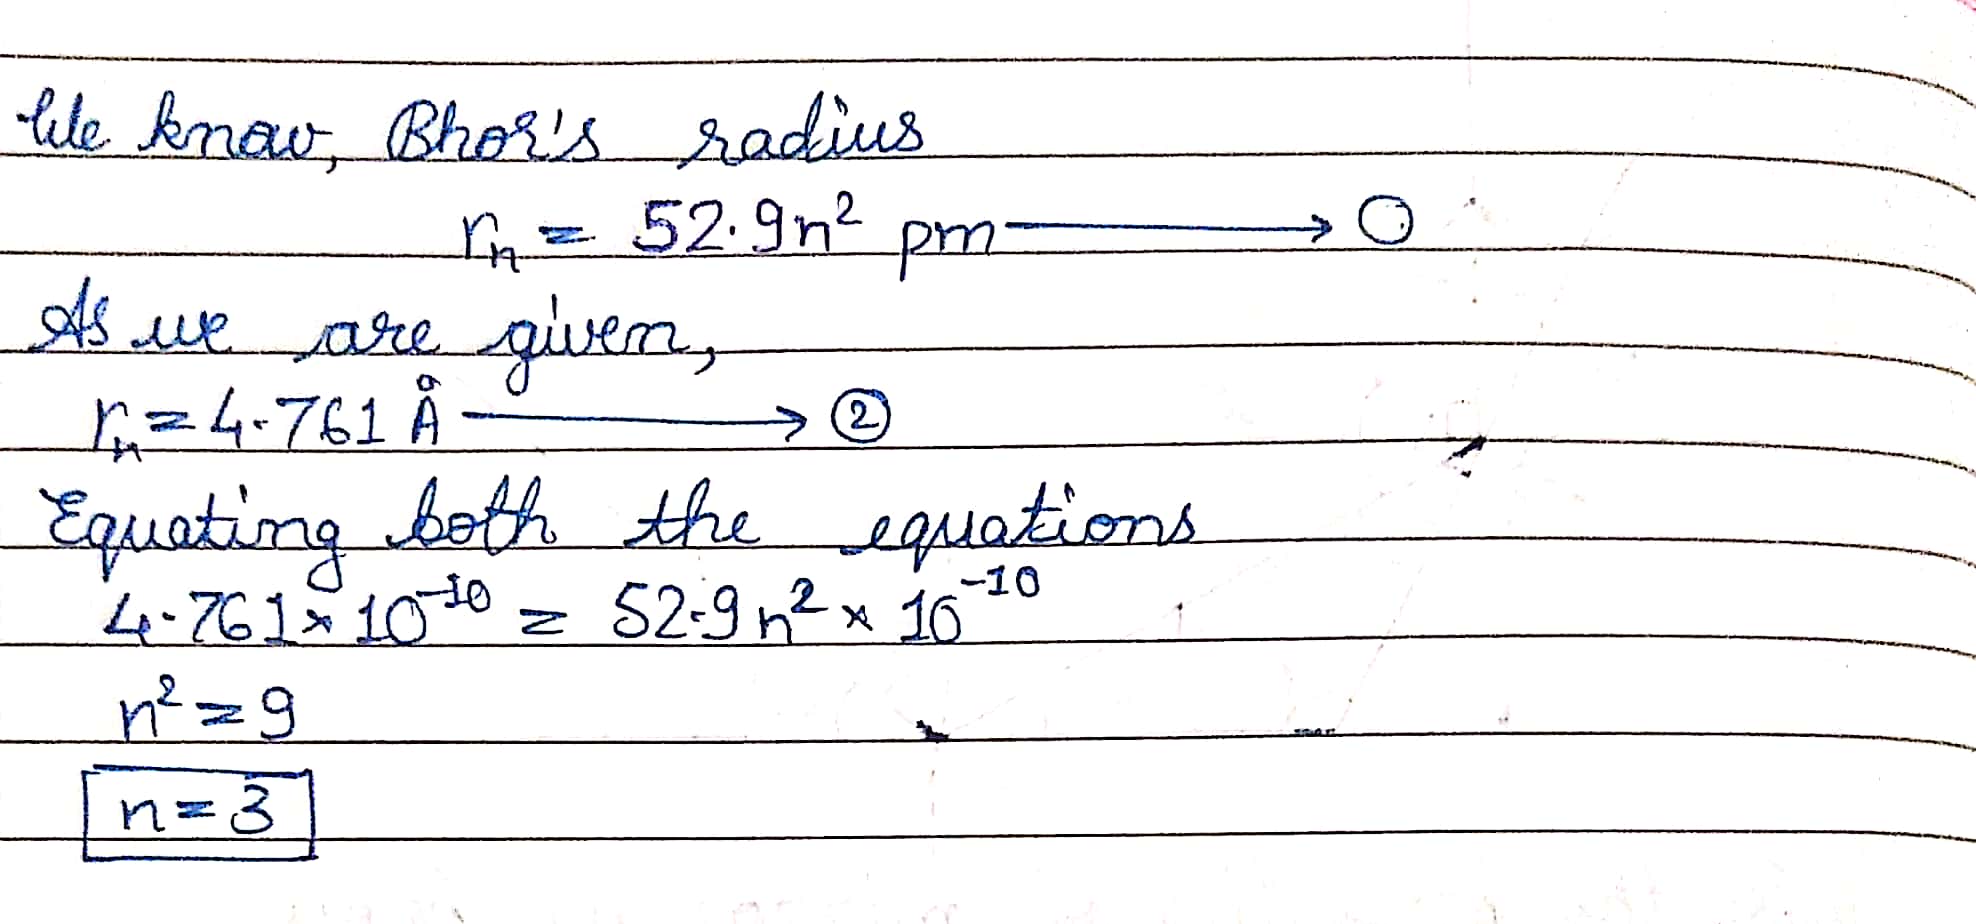 We know, Bhor's radius
rₙ = 52.9n² pm ⟶ ○
As we are given,
rₙ = 4.761 Å ⟶ ②
Equating both the equations
4.761 × 10⁻¹⁰ = 52.9 n² × 10⁻¹⁰
n² = 9
n = 3